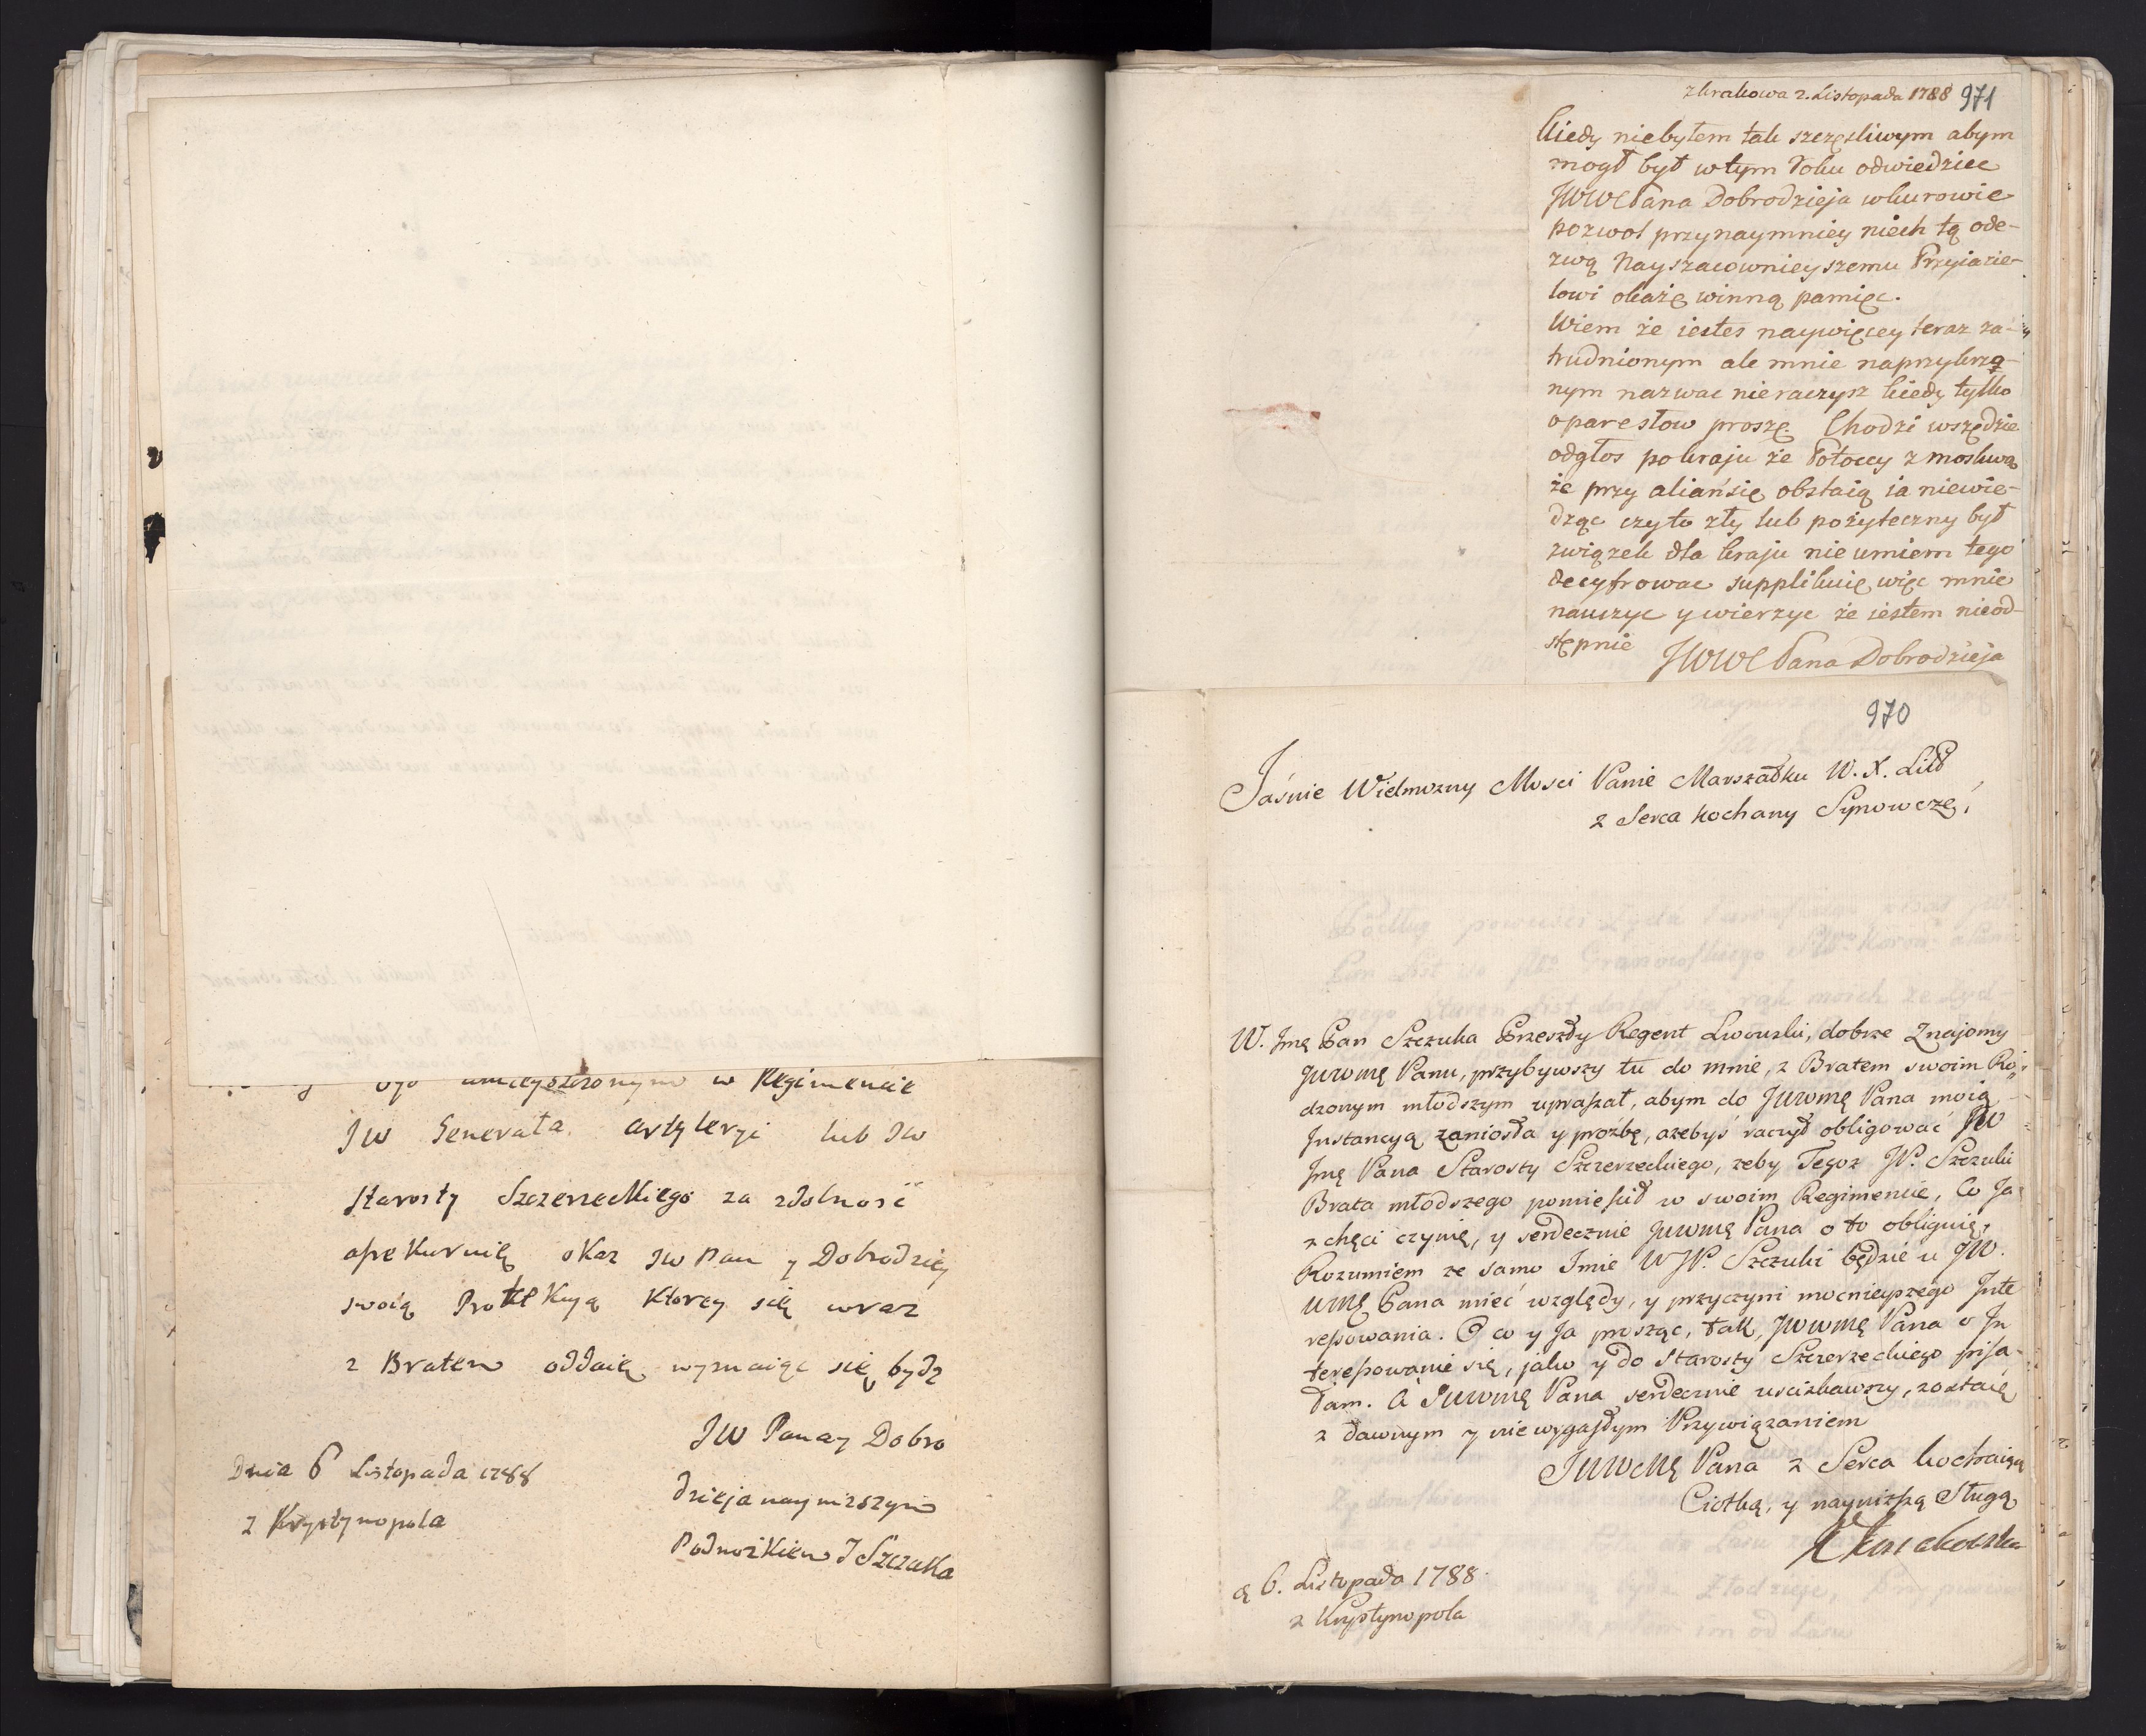 umieyszczonym w Regimencie
JW Generała artyleryi lub JW
Starosty Szczerzeckiego za zdolnosc
aprekurnię okaz JW Pan y Dobrodziey
swoią Protekcyą ktorey się wraz
z Bratem oddaię wyznaiąc się bydz
JW Pana y Dobro
dzieja nayniższym
Podnożkiem J Szczuka
Dnia 6 Listopada 1788
z Krystynopola
z krakowa 2. Listopada 1788 971
Kiedy niebyłem tak szczęsliwym abym
mogł był w tym Roku odwiedziec
JWWC Pana Dobrodzieja w kurowie
pozwol przynaymniey niech tą ode-
zwą Nayszacownieyszemu Przyiacie-
lowi okażę winną pamięc.
Wiem że iestes naywięcey teraz za-
trudnionym ale mnie naprzykrzo-
nym nazwac nie raczysz kiedy tylko
o pare słow proszę. Chodzi wszędzie
odgłos po kraju że Potoccy z moskwą
że przy aliańsię obstaią ia niewie-
dząc czy to zły lub pożyteczny był
związek dla kraju nie umiem tego
decyfrowac supplikuię więc mnie
nauczyc y wierzyc że iestem nieod-
stępnie
JWWC Pana Dobrodzieja
970
Jaśnie Wielmozny Mosci Panie Marszałku W. X. Litt
z Serca kochany Synowcze,
W. Jmę Pan Szczuka Przeszły Regent Lwowski, dobrze Znajomy
JWWMę Panu, przybywszy tu do mnie, z Bratem swoim Ro-
dzonym młodszym upraszał, abym do JWWMę Pana moią
Instancyą zaniosła y prozbę, azebyś raczył obligować JW
Jmę Pana Starosty Szczerzeckiego, zeby Tegoz JP. Szczuki
Brata młodszego pomieścił w swoim Regimencie, Co Ja
z chęci czynię, y serdecznie JWWMę Pana o to obliguię,
Rozumiem ze samo Imie WJP. Szczuki będzie u JW
WMę Pana mieć względy, y przyczyni mocnieyszego Inte
ressowania. O co y Ja prosząc, tak JWWMę Pana o In
teressowanie się, jako y do Starosty Szczerzeckiego pisa-
łam. A JWWMę Pana serdecznie uscizkawszy, zostaię
z dawnym y niewygasłym Przywiązaniem
JWWMę Pana z Serca kochaiąca
Ciotką, y nayniższą Sługą
Kossakowska
d 6. Listopada 1788.
z Krystynopola